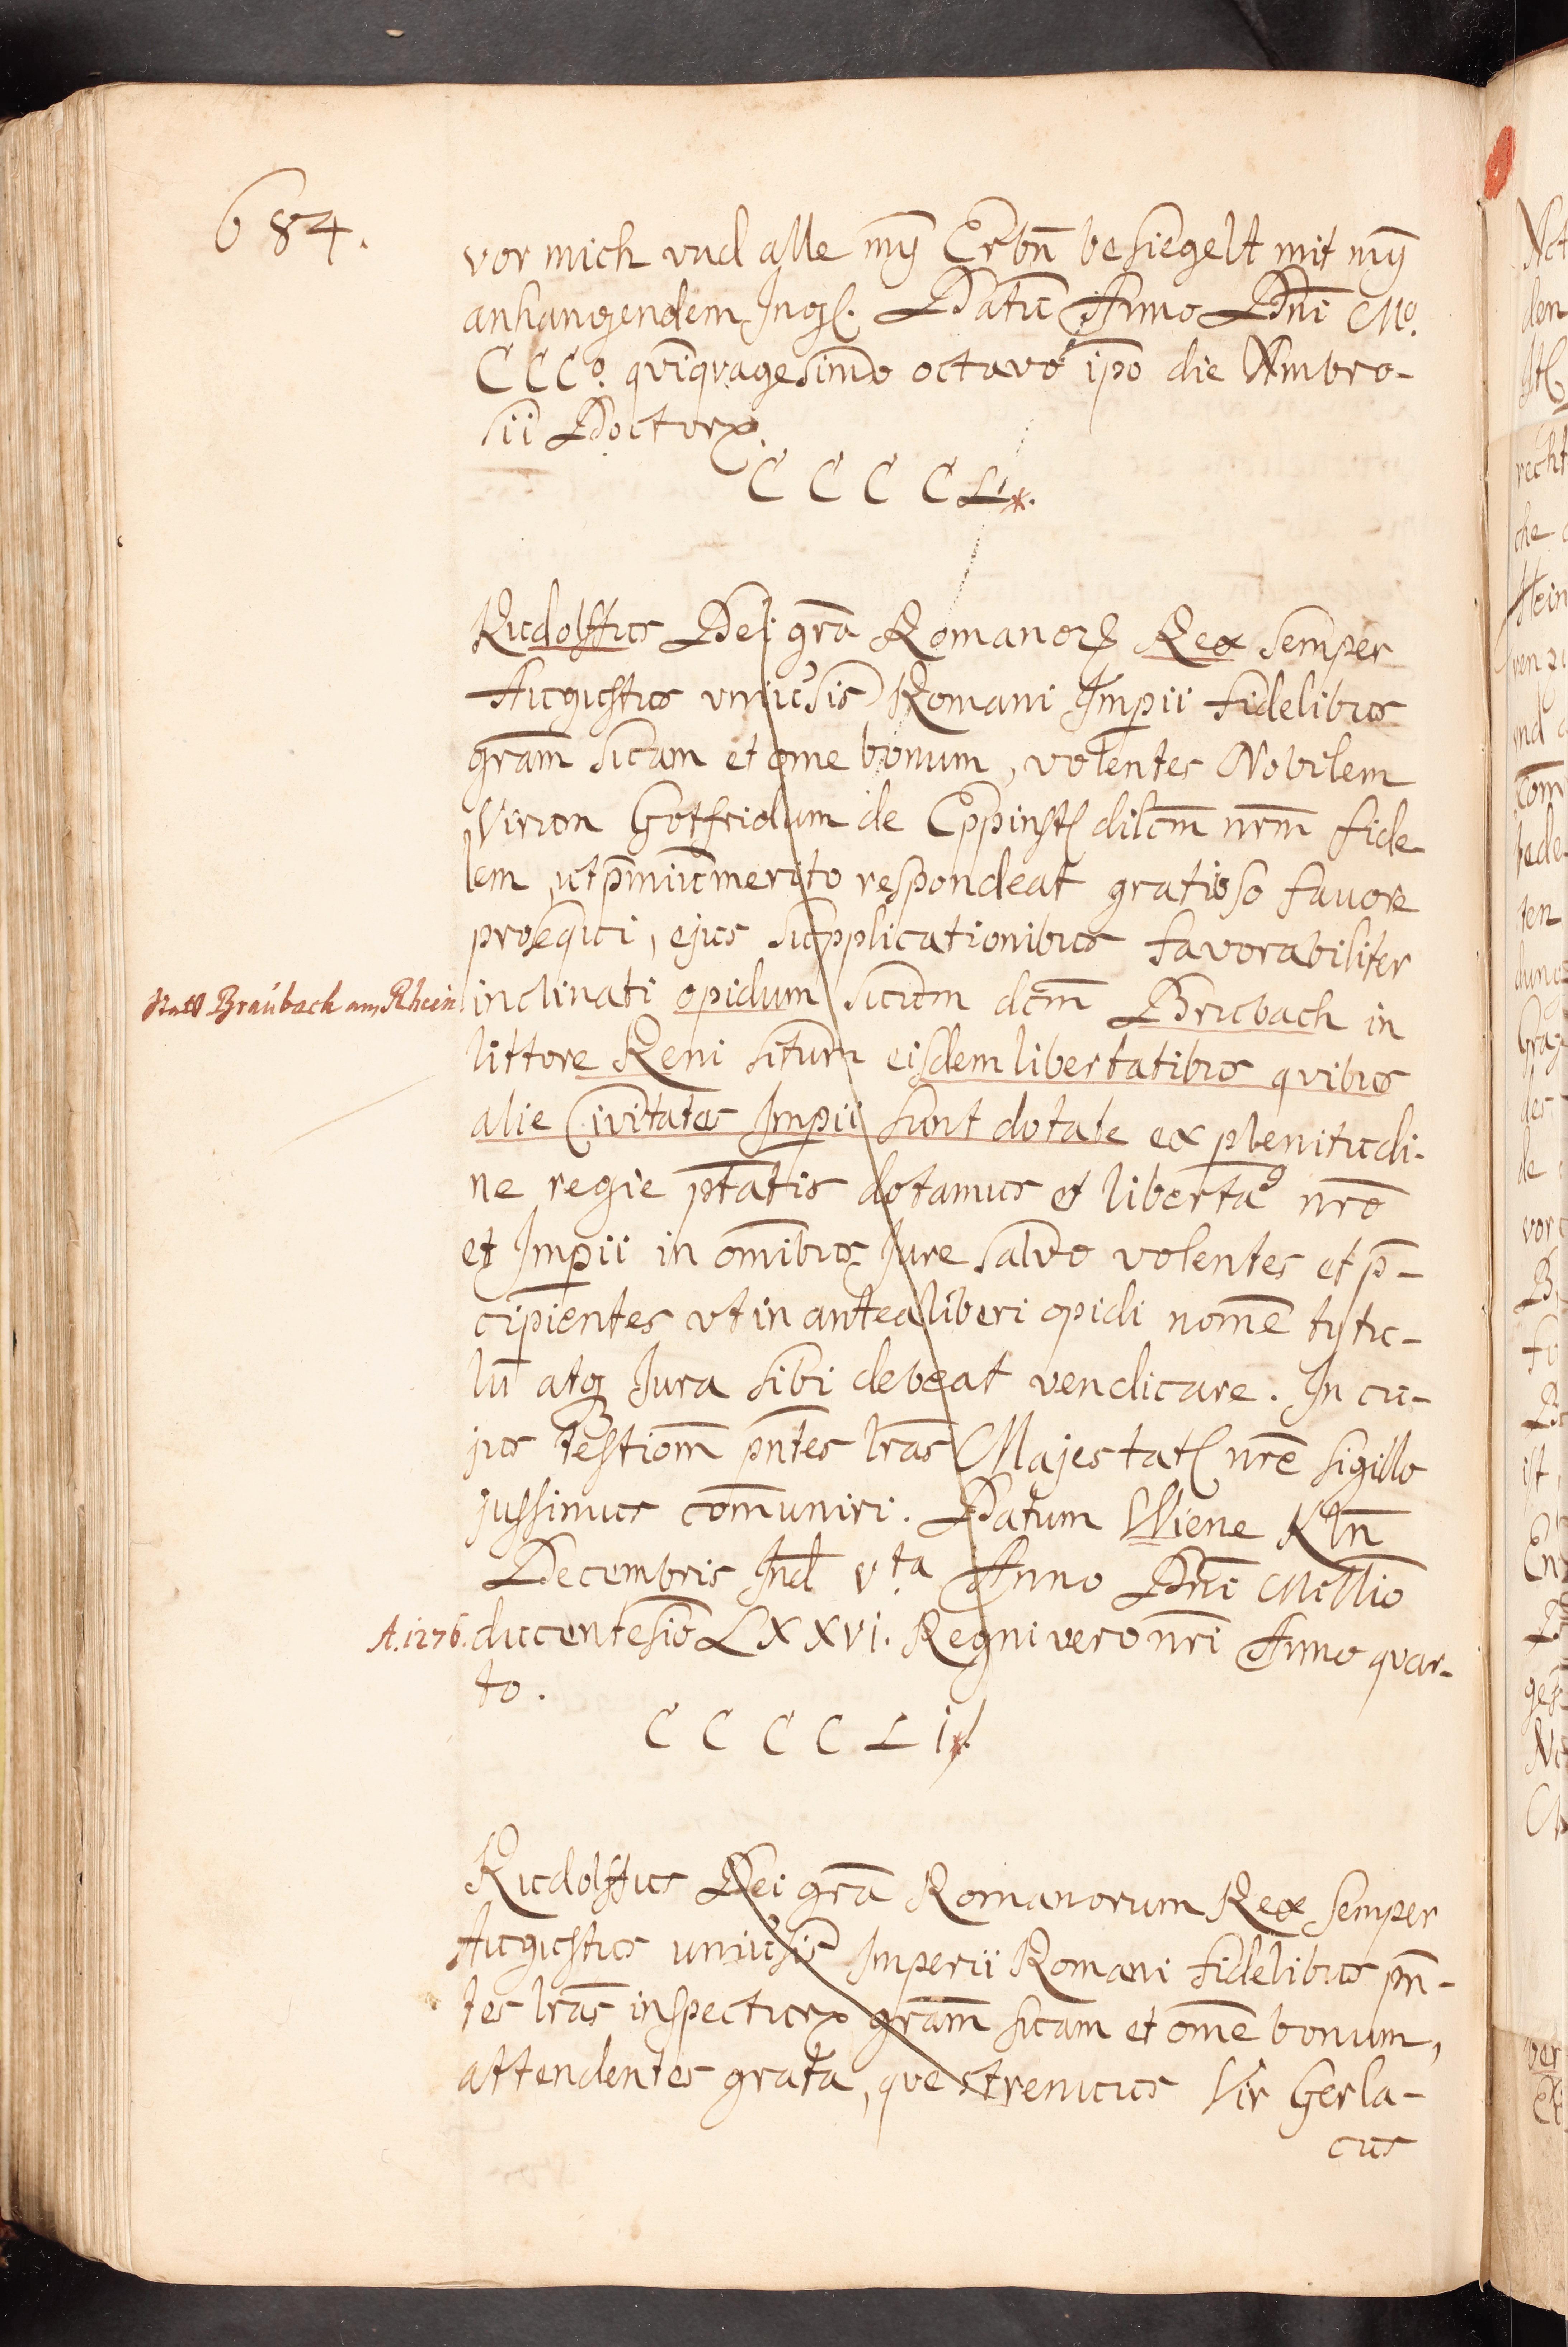 684.
vor mich vnd alle mӯ Erbn̄ besiegelt mit mӯ
anhangendem Ingſ. Datū Anno Dn̄i Mº.
CCCº. qvīqvagesimo octavo ip̄o die Ambro-
sii Doctorꝭ.
C C C C L.
Rudolffus Dei gr̄a Romanoꝝ Rex semper
Augustus vniūsis Romani Imp̄ii fidelibus
gr̄am suam et om̄e bonum, volentes Nobilem
Virum Gotfridum de Eppinstſ dilc̄m nr̄m fide
lem, ut p̄miūmerito respondeat gratioso fauore
prosequi, ejus supplicationibus favorabiliter
Statt Braubach am Rhein. inclinati opidum suum dc̄m Brubach in
littore Reni situm eisdem libertatibus qvibus
alie Civitates Imp̄ii sunt dotate ex plenitudi-
ne regie p̄tatis dotamus et libertaꝰ nr̄o
et Imp̄ii in om̄ibus Jure salvo volentes et p̄-
cipientes vt in antea liberi opidi nomē tytu-
lū atqꝫ Jura sibi debeat vendicare. In cu-
jus testiom̄ pn̄tes lr̄as Majestatſ nr̄e sigillo
jussimus com̄uniri. Datum Wiene Kln̄
Decembris Ind̄ vta Anno Dn̄i Mill̄io
A. 1276. ducentesīo LXXVI. Regni vero nr̄i Anno qvar-
to.
C C C C L i.
Rudolffus Dei gr̄a Romanorum Rex semper
Augustus uniūsis Imperii Romani fidelibus pn̄-
tes lr̄as inspecturꝭ gr̄am suam et om̄e bonum,
attendentes grata, que strenuus Vir Gerla-
cus